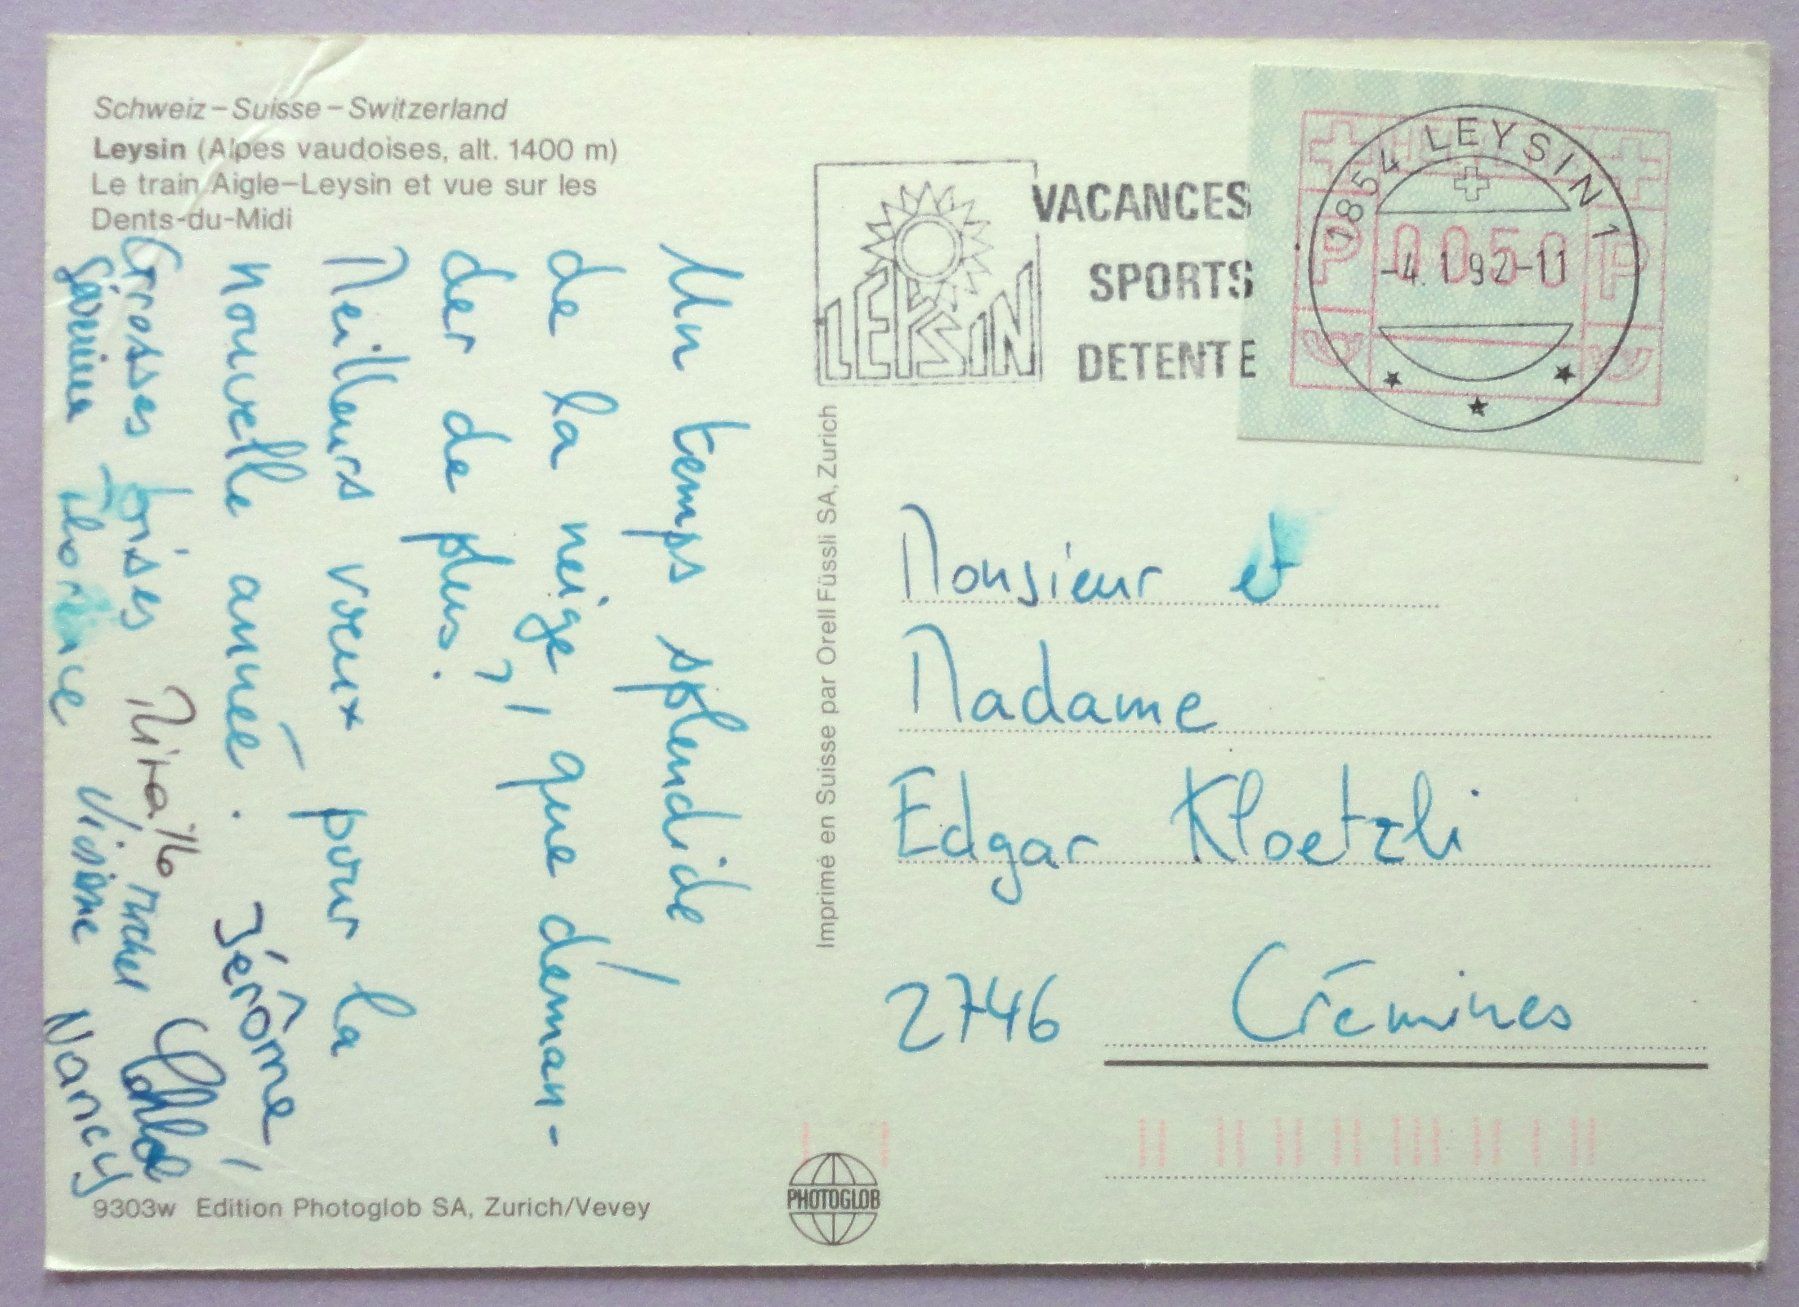 Schweiz – Suisse – Switzerland
Leysin (Alpes vaudoises, alt. 1400 m)
Le train Aigle–Leysin et vue sur les
Dents-du-Midi
Un temps splendide
de la neige, que deman-
der de plus?
Meilleurs vœux pour la
nouvelle année. Jérôme
Grosses bises
Florence Nancy
LEYSIN
VACANCES
SPORTS
DETENTE
1854 LEYSIN 1
-4.1.92-11
P 0050 P
Imprimé en Suisse par Orell Füssli SA, Zurich
Monsieur et
Madame
Edgar Kloetzli
2746 Crémines
9303w Edition Photoglob SA, Zurich/Vevey
PHOTOGLOB